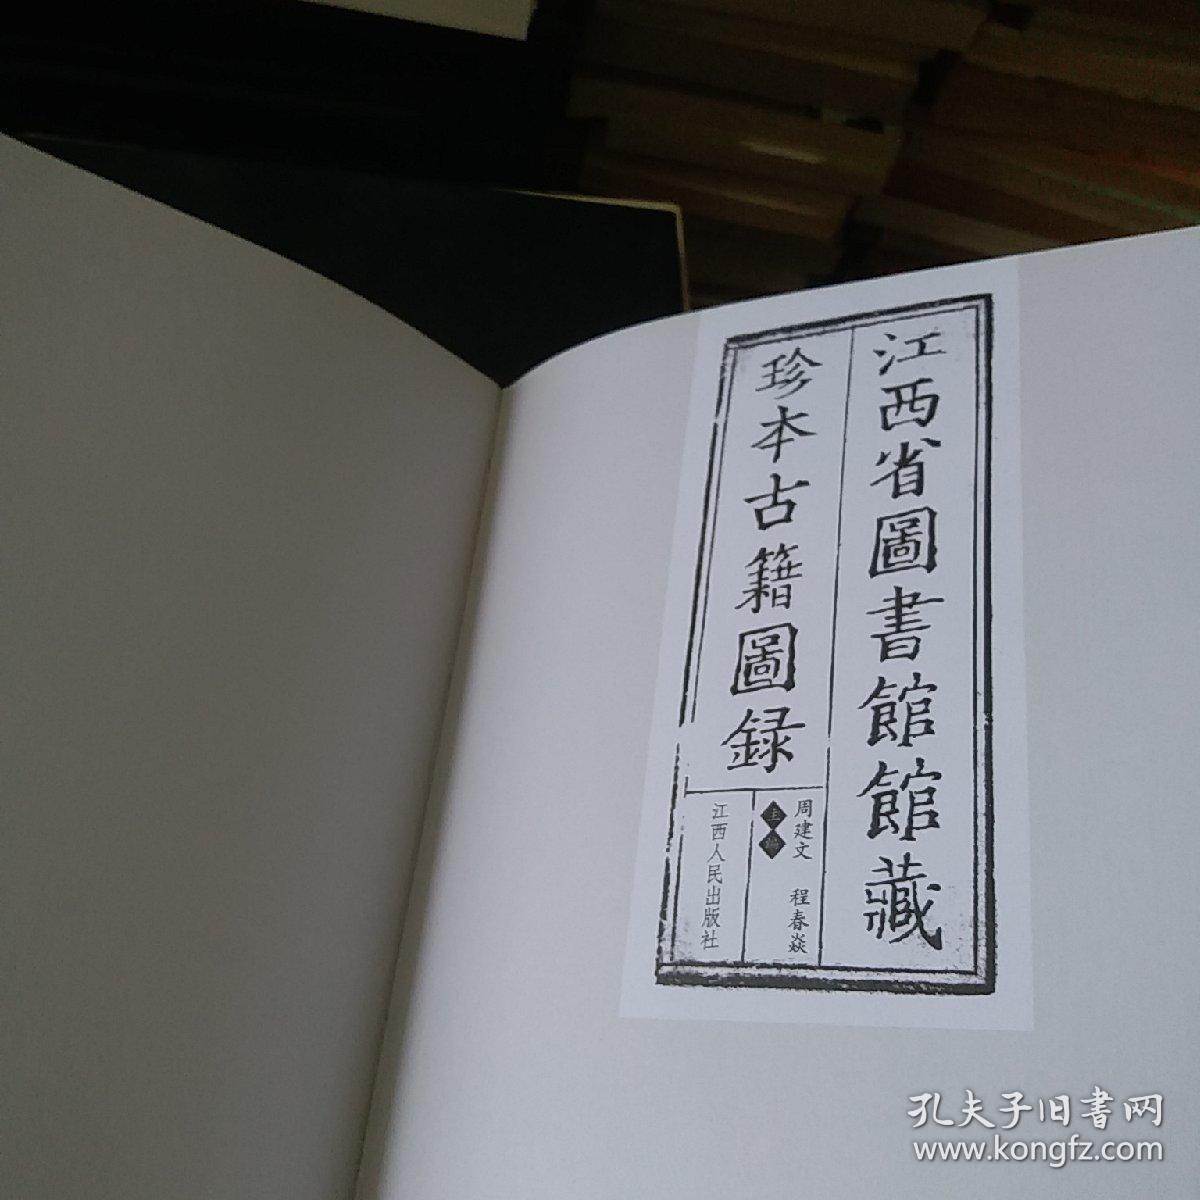 江西省圖書館館藏
珍本古籍圖録
周建文 程春焱
主編
江西人民出版社
孔夫子旧书网
www.kongfz.com